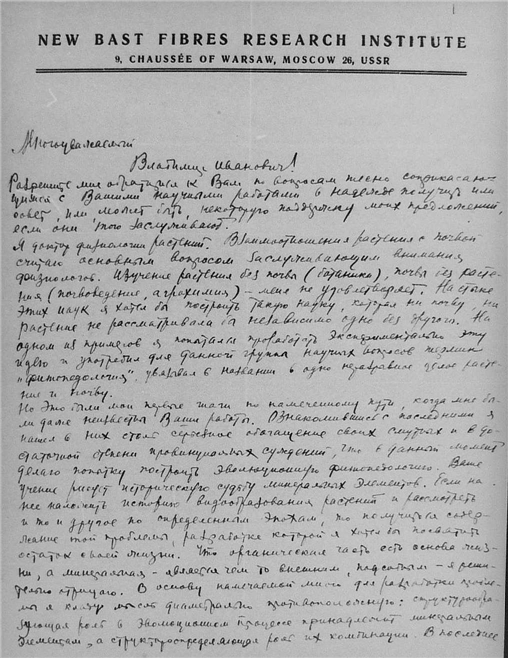 NEW BAST FIBRES RESEARCH INSTITUTE
9, CHAUSSÉE OF WARSAW, MOSCOW 26, USSR
Многоуважаемый
Владимир Иванович!
Разрешите мне обратиться к Вам по вопросам тесно соприкасаю-
щимся с Вашими научными работами в надежде получить или
совет, или, может быть, некоторую поддержку моих предложений,
если они того заслуживают.
Я доктор физиологии растений. Взаимоотношения растения с почвой
считаю основным вопросом заслуживающим внимания
физиологов. Изучение растения без почвы (ботаники), почвы без расте-
ния (почвоведение, агрохимия) – меня не удовлетворяет. На стыке
этих наук я хотел бы построить такую науку, которая ни почву, ни
растение не рассматривала бы независимо одно без другого. На
одном из примеров я попытался проработать экспериментально эту
идею и употребил для данной группы научных вопросов термин
"фитопедология", указывая в названии в одно неразрывное целое расте-
ние и почву.
Но это были мои первые шаги по намеченному пути, когда мне бы-
ли даже неизвестны Ваши работы. Ознакомившись с последними я
нашел в них столь серьезное обогащение своих смутных и в до-
статочной степени провинциальных суждений, что в данный момент
делаю попытку построить эволюционную фитопедологию. Ваше
учение рисует историческую судьбу минеральных элементов. Если на
нее наложить историю видообразования растений и рассмотреть
и то и другое по определенным эпохам, то получиться содер-
жание той проблемы, разработке которой я хотел бы посвятить
остаток своей жизни. Что органическая часть есть основа жиз-
ни, а минеральная - является чем то внешним, подсобным - я реши-
тельно отрицаю. В основу намечаемой мною для разработки пробле-
мы я кладу мысль диаметрально противоположную: структурообра-
зующая роль в эволюционном процессе принадлежит минеральным
элементам, а структураопределяющая роль их комбинации. В последнее